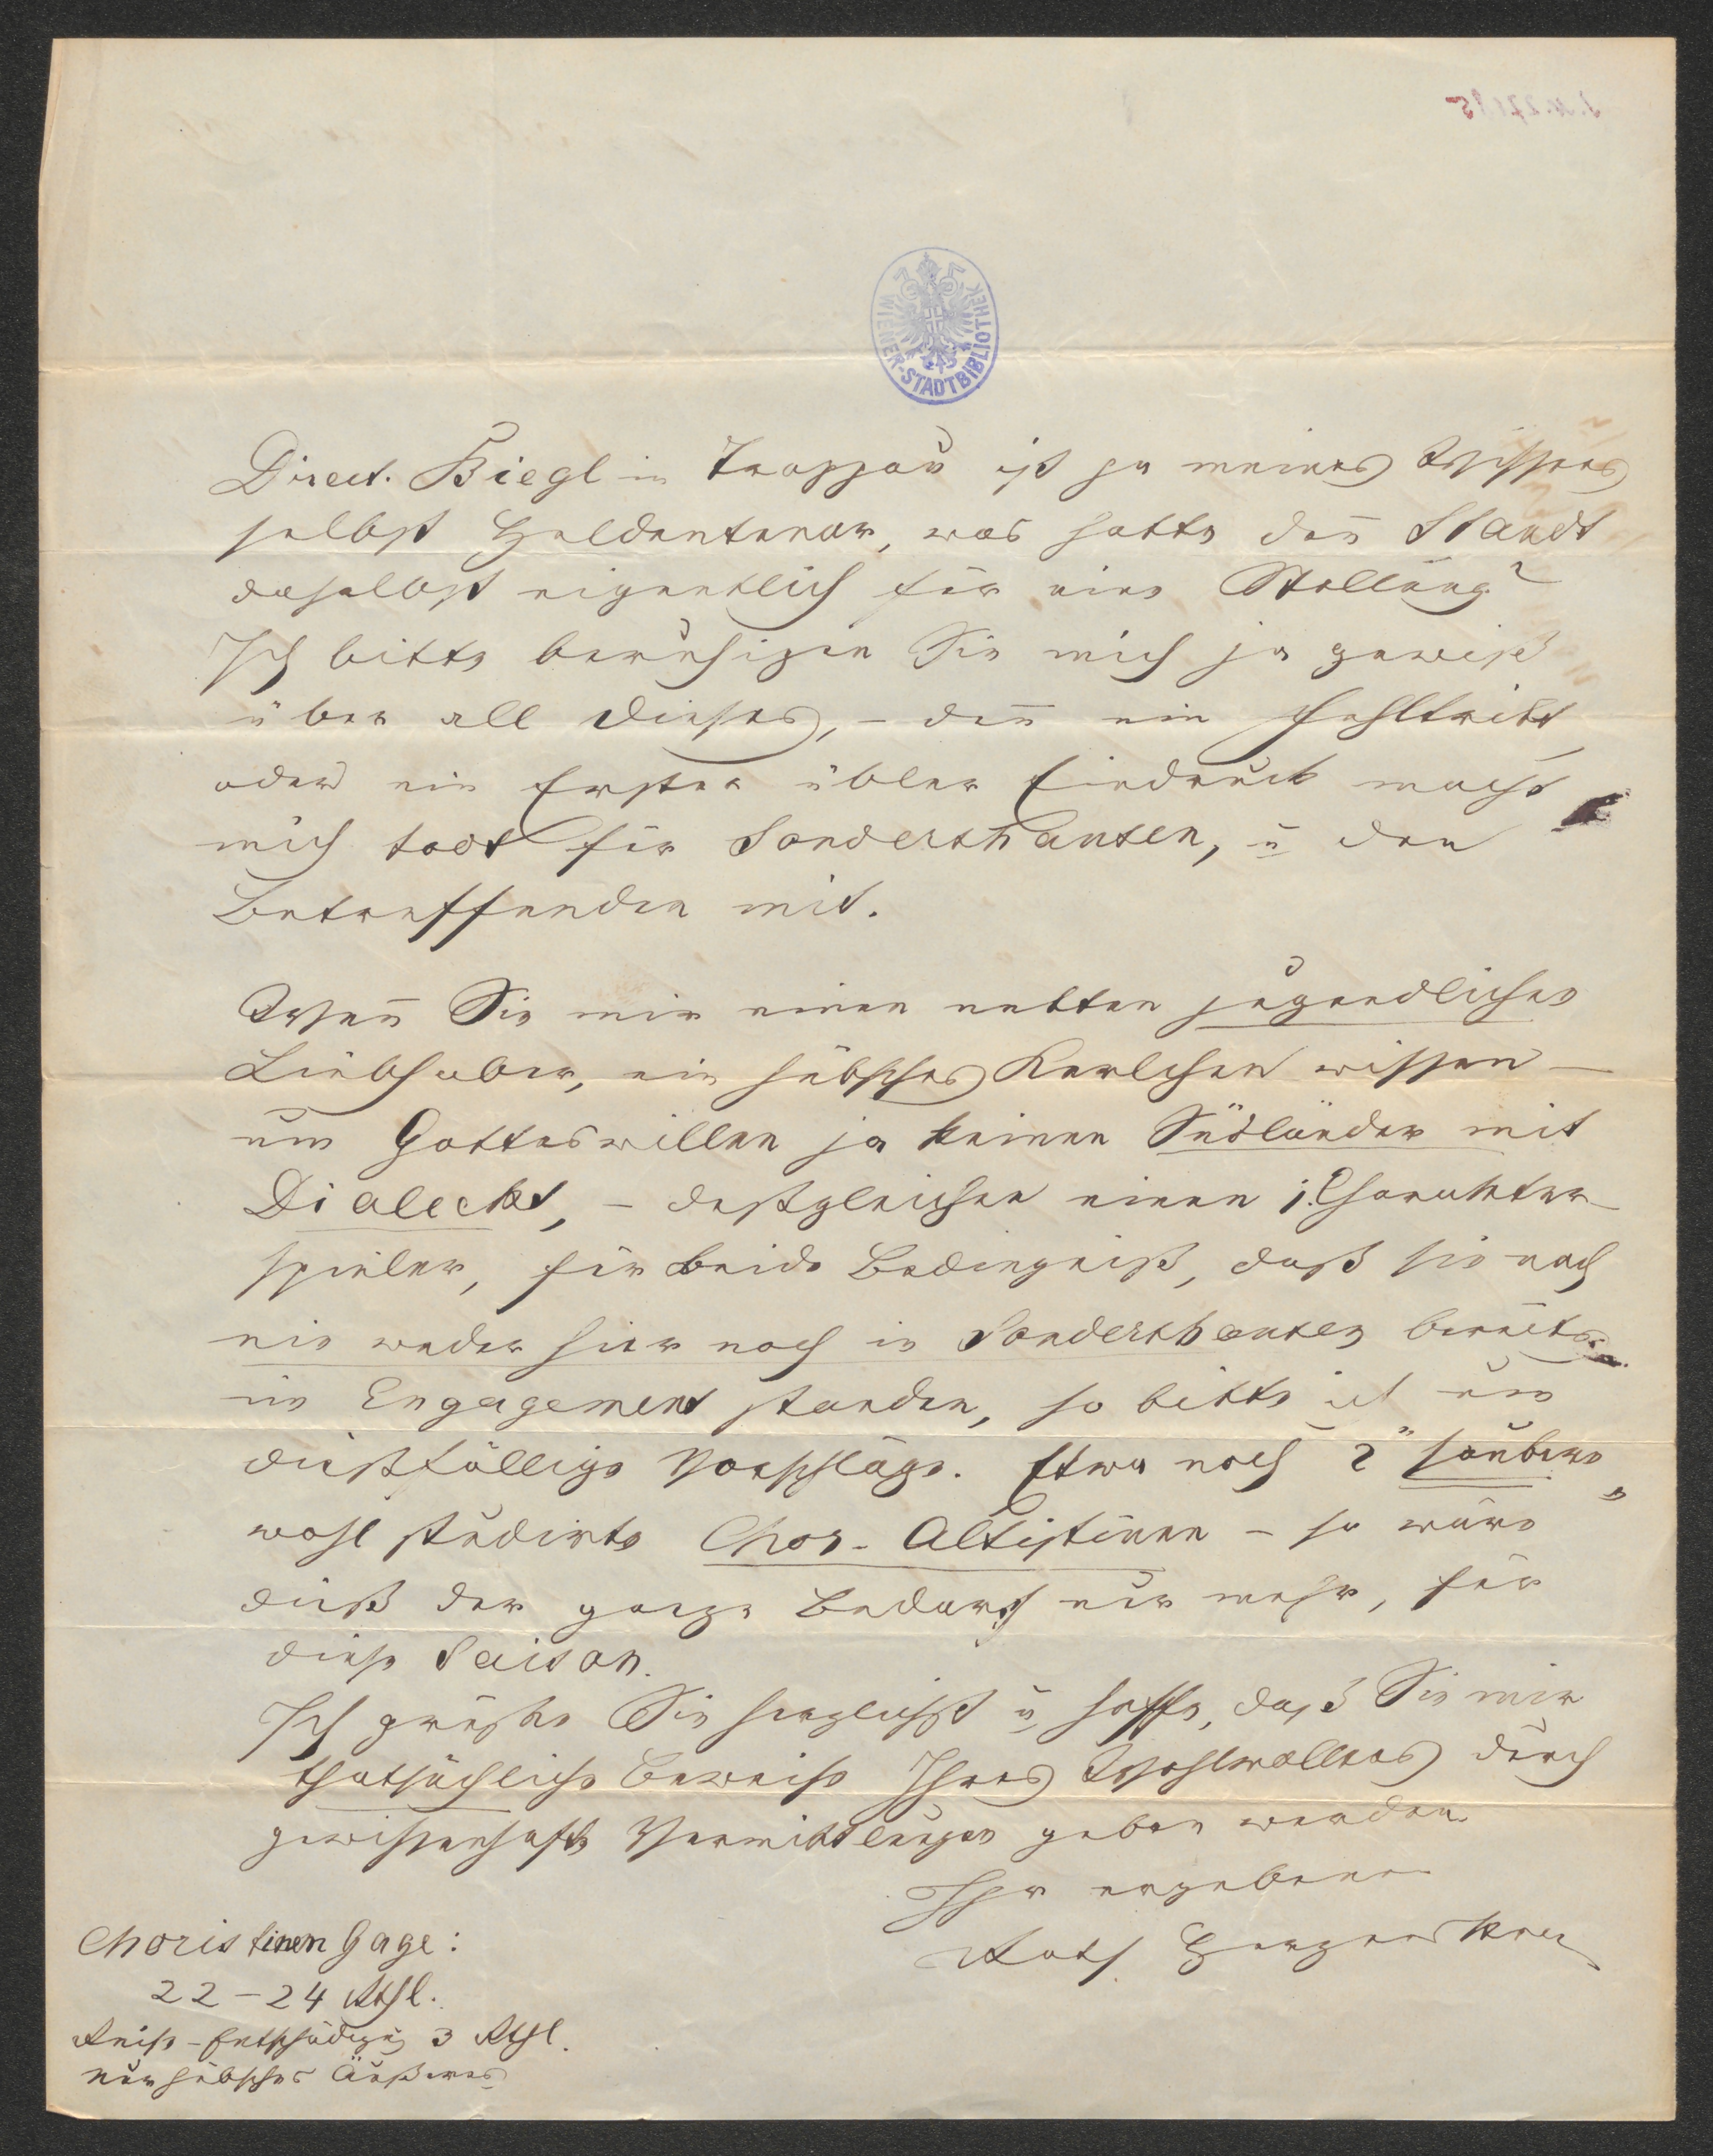 J. N. 27195
WIENER-STADTBIBLIOTHEK
Direct. Biegl in Troppau ist ja meines Wissens
selbst Heldentenor, was hatte den̄ Standt
daselbst eigentlich für eine Stellung?
Ich bitte beruhigen Sie mich ja gewiß
über all dieses, – den̄ ein Fehltritt
oder ein Erster übler Eindruck macht
mich todt für Sondershausen, u den
Betreffenden mit.
Wen̄ Sie mir einen netten jugendlichen
Liebhaber, ein hübsches Kerlchen wissen –
um Gotteswillen ja keinen Südländer mit
Dialeckt, – deßgleichen einen j. Charakter-
spieler, für beide Bedingniß, daß sie noch
nie weder hier noch in Sondershausen bereits
im Engagement standen, so bitte ich um
dießfällige Vorschläge. Etwa noch 2 „saubere„
wohl studirte Chor-Altistinen – so wäre
dieß der ganze Bedarf nur mehr, für
diese Saison.
Ich grüße Sie herzlichst u hoffe, daß Sie mir
thatsächliche Beweise Ihres Wohlwollens durch
gewissenhafte Vermittlungen geben werden
Ihr ergebener
Choristinen Gage:
22–24 Rthl.
Reise-Entschädigūg 3 Rthl.
nur hübsches Äußeres